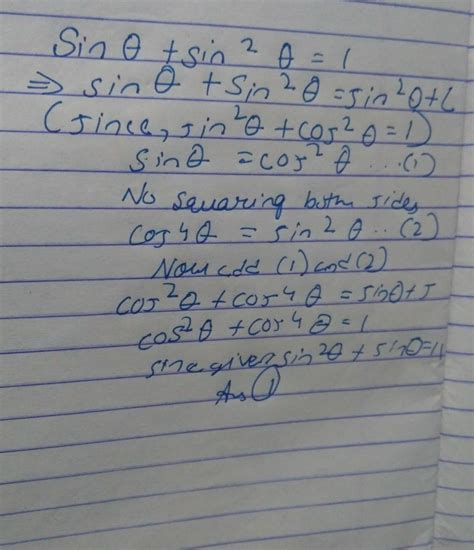 Sinθ + sin² θ = 1
⇒ sinθ + Sin²θ = sin²θ + C
(since, sin²θ + cos²θ = 1)
sinθ = cos²θ ...(1)
No squaring both sides
cos4θ = sin2θ ..(2)
Now add (1) and (2)
cos²θ + cos4θ = sinθ + s
cos²θ + cos4θ = 1
since given sin²θ + sinθ = 1
Ans ①